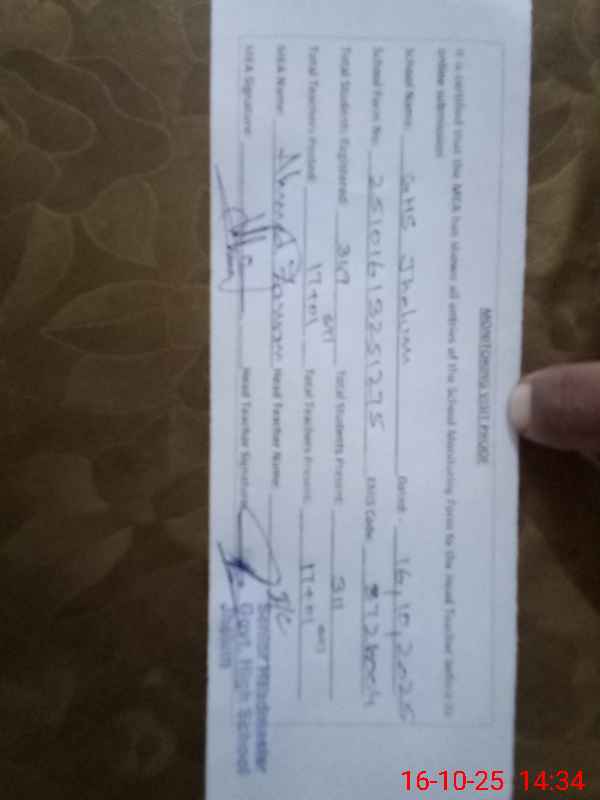 MONITORING VISIT PROOF
It is certified that the MEA has shown all entries of the School Monitoring Form to the Head Teacher before its
online submission
School Name: GHS Jhelum Dated: 16,10,2025
School Form No: EMIS Code:
Total Students Registered: Total Students Present: 311
Total Teachers Posted: 17+01 Total Teachers Present: 17+01
MEA Name: Ahmad Head Teacher Name I/C
MEA Signature: Head Teacher Signature
Senior Headmaster
Govt. High School
16-10-25 14:34